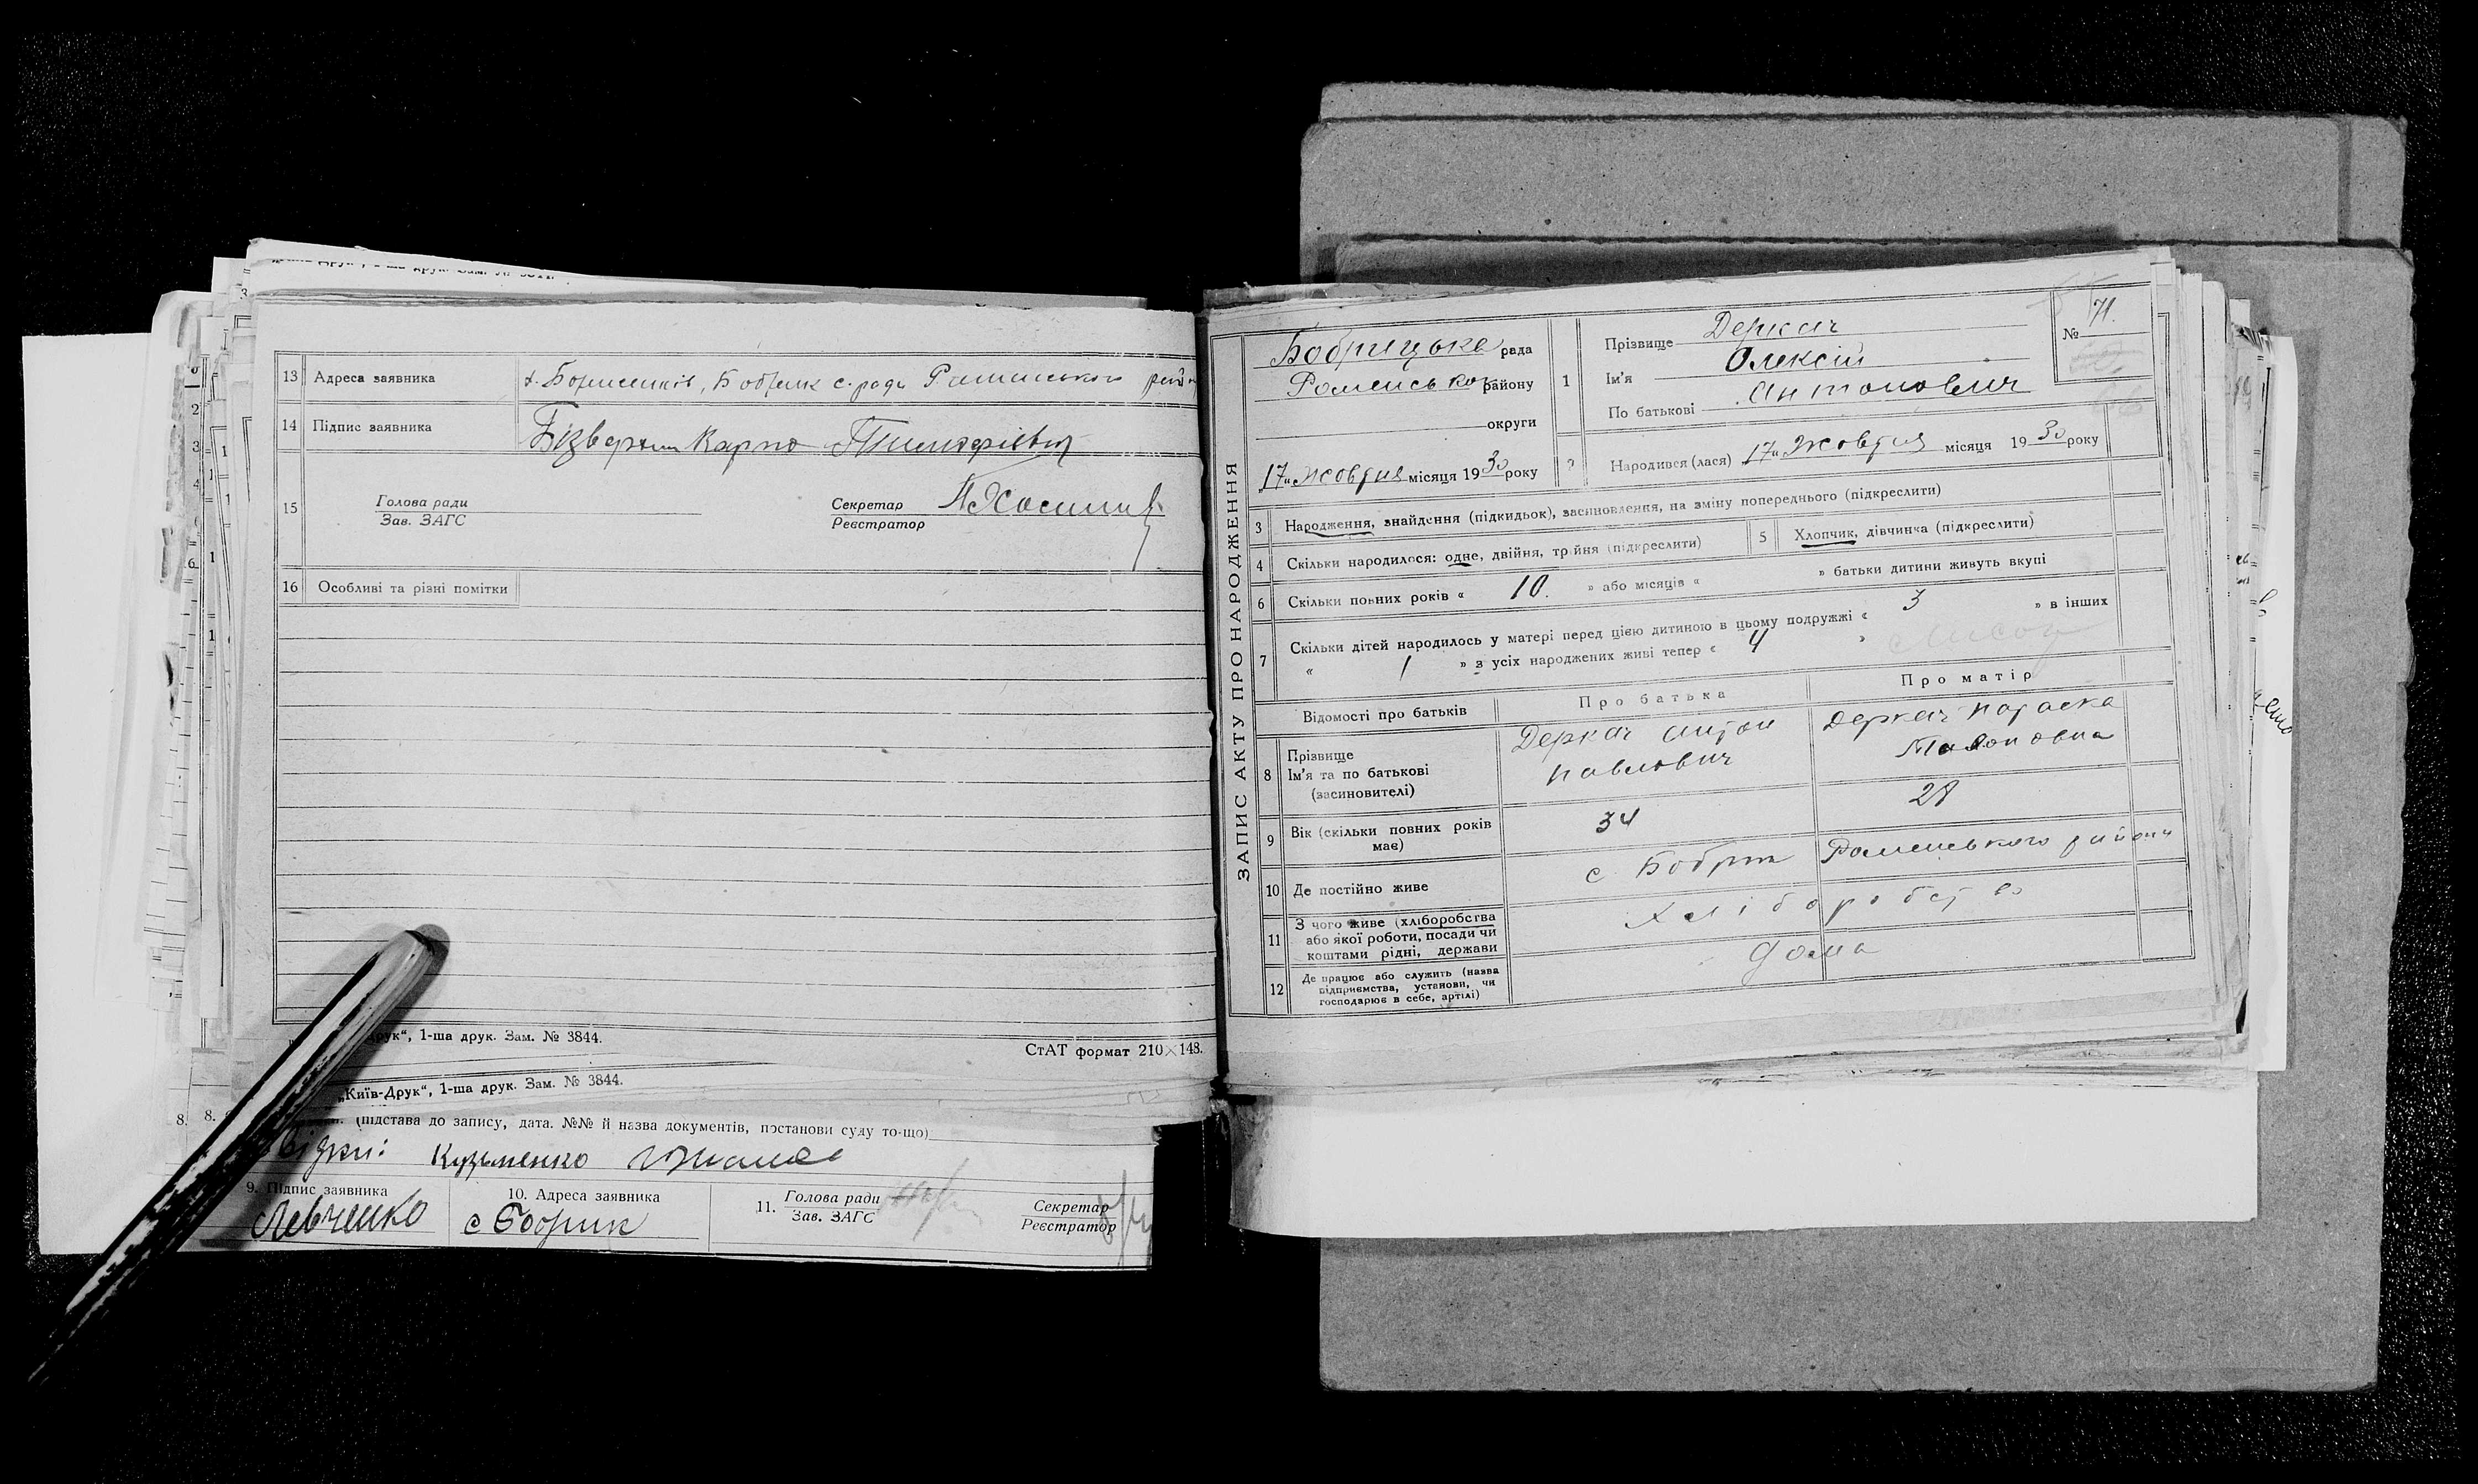 13 Адреса заявника х. Борисенків, Бобрик с. ради Роменського
14 Підпис заявника Карпо
15 Голова ради
Зав. ЗАГС
Секретар
Реєстратор
16 Особливі та різні помітки
друк“, 1-ша друк. Зам. № 3844.
СтАТ формат 210×148.
„Київ-Друк“, 1-ша друк. Зам. № 3844.
8. (підстава до запису, дата. №№ й назва документів, постанови суду то-що)
Кузьменко
9. Підпис заявника
Левченко
10. Адреса заявника
с Бобрик
11. Голова ради
Зав. ЗАГС
Секретар
Реєстратор
ЗАПИС АКТУ ПРО НАРОДЖЕННЯ
Бобрицька рада
Роменського району
округи
„17“ Жовтня місяця 1930 року
1 Прізвище Деркач
Ім'я Олексій
По батькові Антонович
№ 71.
2 Народився (лася) 17“ Жовтня місяця 1930 року
3 Народження, знайдення (підкидьок), засиновлення, на зміну попереднього (підкреслити)
4 Скільки народилося: одне, двійня, трійня (підкреслити)
5 Хлопчик, дівчинка (підкреслити)
6 Скільки повних років « 10. » або місяців « » батьки дитини живуть вкупі
7 Скільки дітей народилось у матері перед цією дитиною в цьому подружжі « 3 » в інших
« 1 » з усіх народжених живі тепер « 4 »
Відомості про батьків Про батька Про матір
8 Прізвище
Ім'я та по батькові
(засиновителі)
Деркач Антон
Павлович
Деркач Параска
9 Вік (скільки повних років
має)
34
28
10 Де постійно живе с Бобрик Роменського району
11 З чого живе (хліборобства
або якої роботи, посади чи
коштами рідні, держави
Хліборобство
12 Де працює або служить (назва
підприємства, установи, чи
господарює в себе, артілі)
Дома